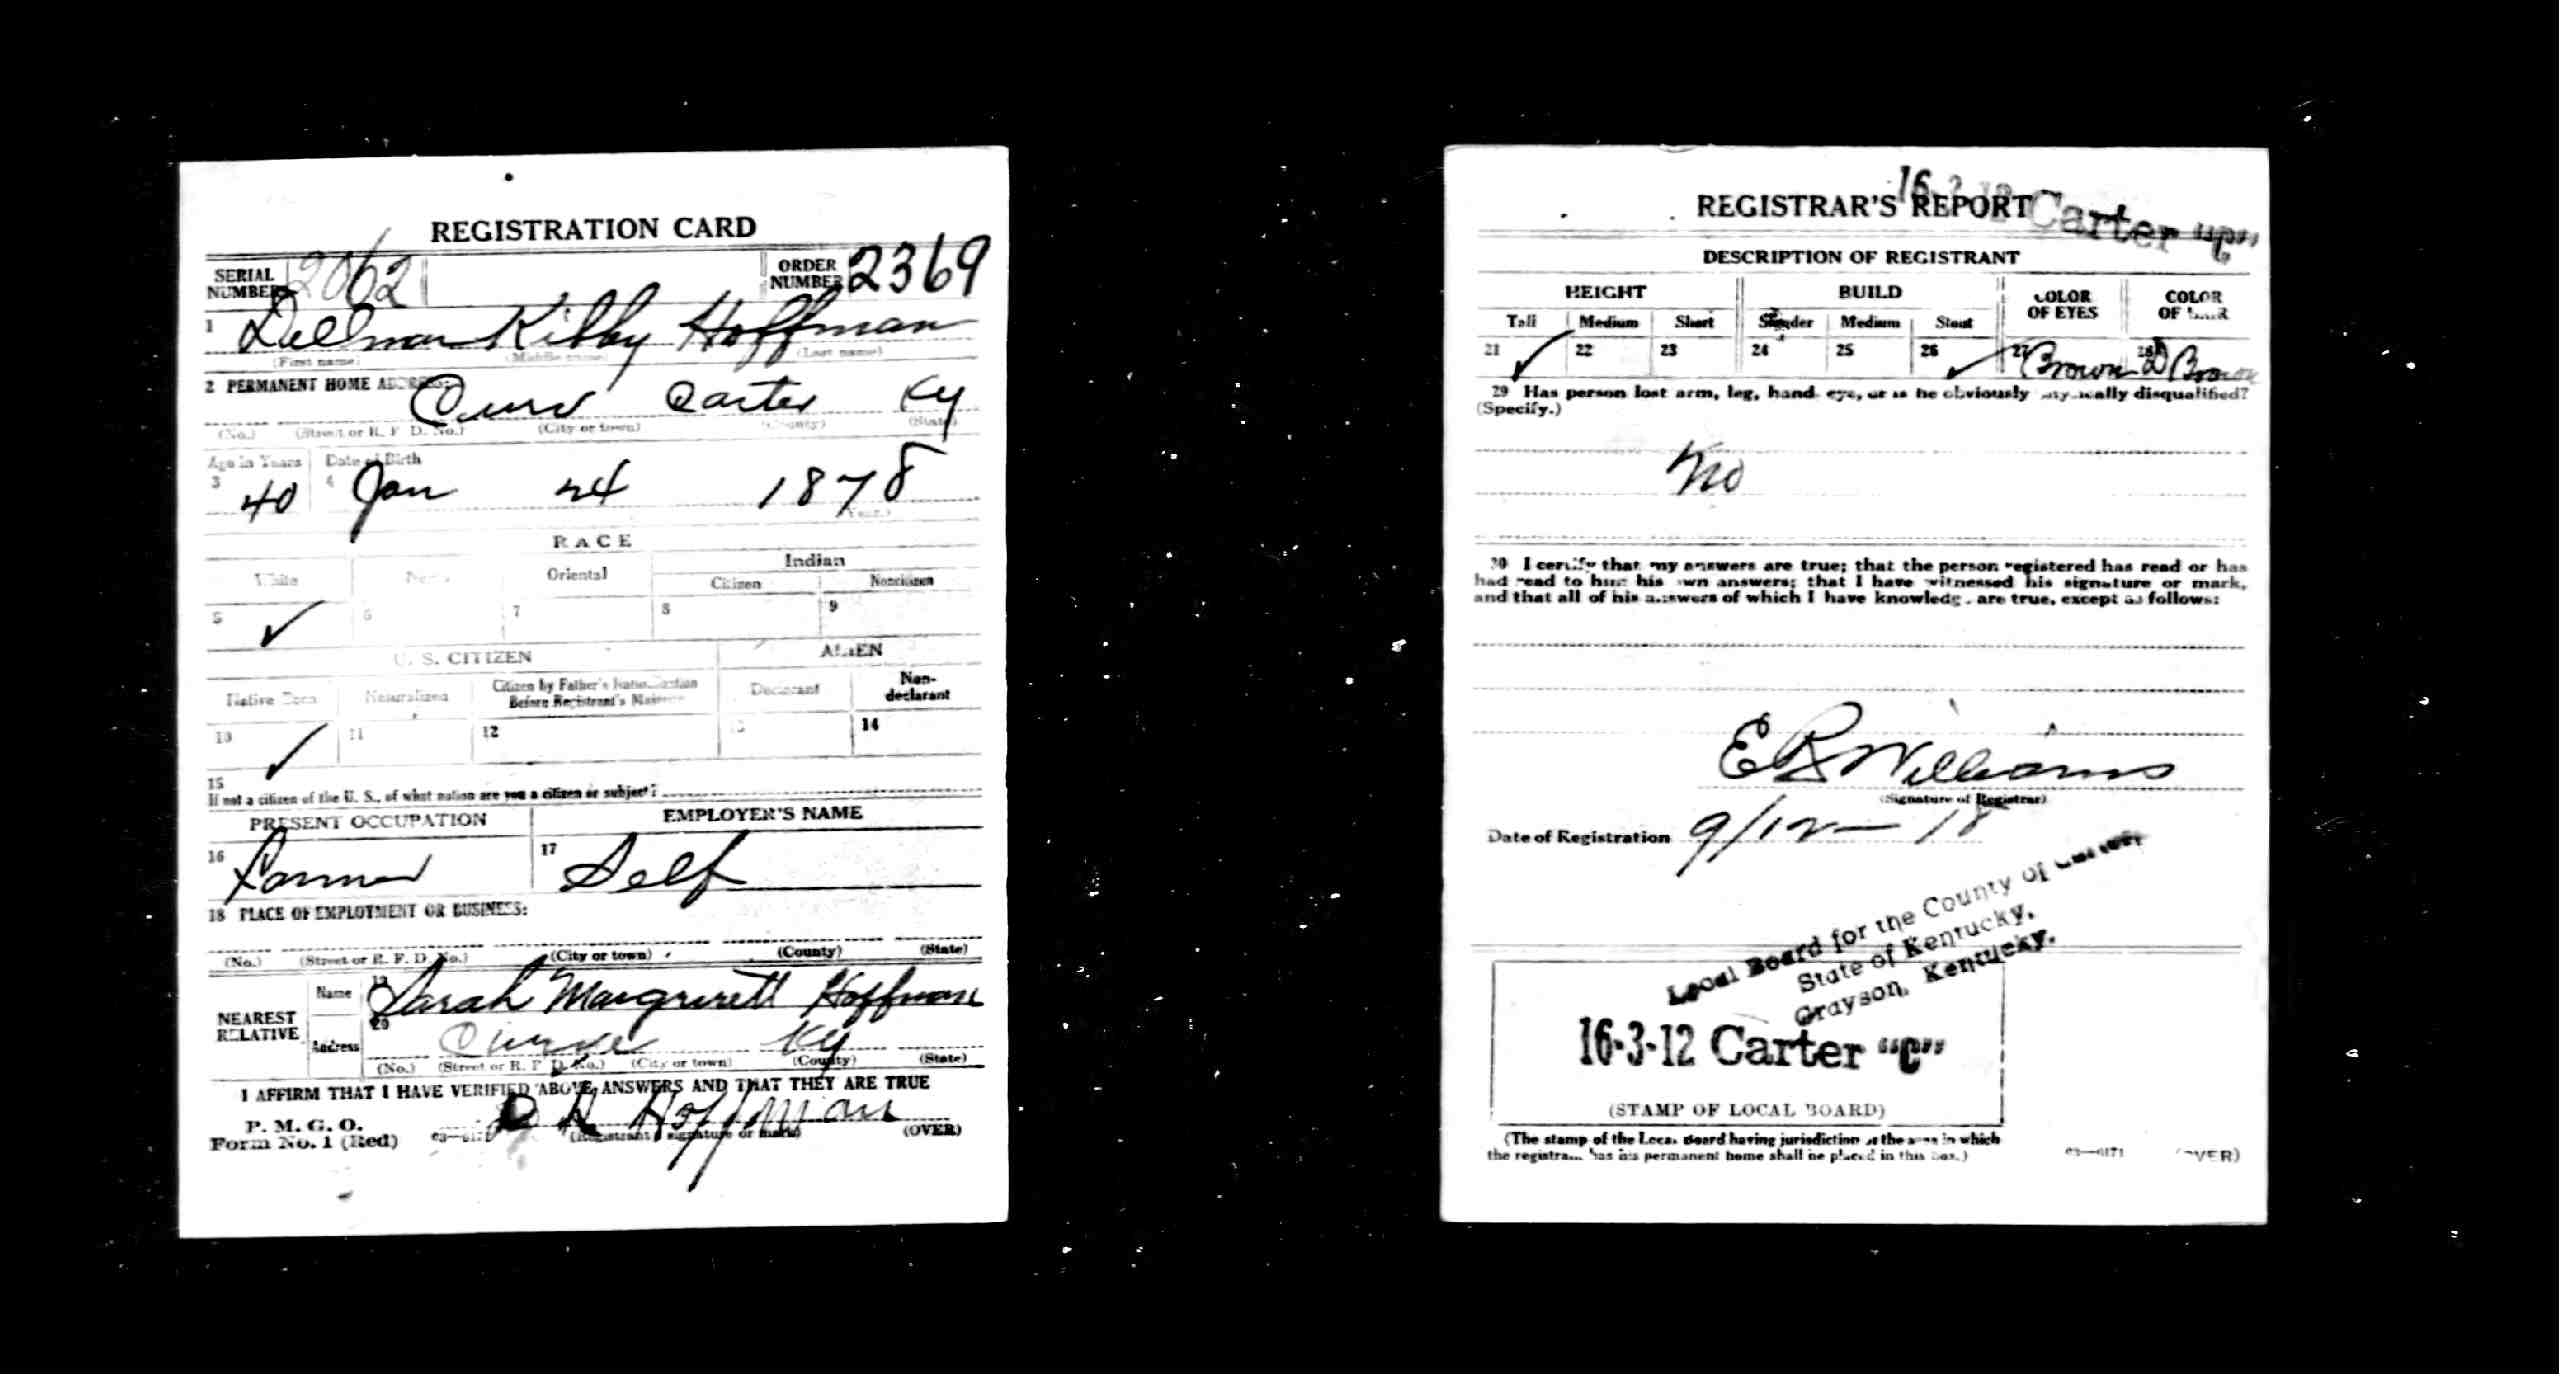 REGISTRATION CARD
SERIAL NUMBER 2062
ORDER NUMBER 2369
1 Dellmar Kilby Hoffman
(First name) (Middle name) (Last name)
2 PERMANENT HOME ADDRESS:
Carter Ky
(No.) (Street or R. F. D. No.) (City or town) (County) (State)
Age in Years Date of Birth
3 40 4 Jan 24 1878
(Year.)
RACE
White Negro Oriental Indian
Citizen Noncitizen
5 ✓ 6 7 8 9
U. S. CITIZEN ALIEN
Native Born Naturalized Citizen by Father's Naturalization Before Registrant's Majority Declarant Non-declarant
10 ✓ 11 12 13 14
15
If not a citizen of the U. S., of what nation are you a citizen or subject?
PRESENT OCCUPATION EMPLOYER'S NAME
16 Farmer 17 Self
18 PLACE OF EMPLOYMENT OR BUSINESS:
(No.) (Street or R. F. D. No.) (City or town) (County) (State)
NEAREST RELATIVE
Name 19 Sarah Margrett Hoffman
Address 20 Ky
(No.) (Street or R. F. D. No.) (City or town) (County) (State)
I AFFIRM THAT I HAVE VERIFIED ABOVE ANSWERS AND THAT THEY ARE TRUE
P. M. G. O.
Form No. 1 (Red) 03—6171 D K Hoffman
(Registrant's signature or mark) (OVER)
16-3-12 Carter "C"
REGISTRAR'S REPORT
DESCRIPTION OF REGISTRANT
HEIGHT BUILD COLOR OF EYES COLOR OF HAIR
Tall Medium Short Slender Medium Stout
21 ✓ 22 23 24 25 26 ✓ 27 Brown 28 D Brown
29 Has person lost arm, leg, hand, eye, or is he obviously physically disqualified?
(Specify.)
No
30 I certify that my answers are true; that the person registered has read or has
had read to him his own answers; that I have witnessed his signature or mark,
and that all of his answers of which I have knowledge are true, except as follows:
E R Williams
(Signature of Registrar)
Date of Registration 9/12—18
Local Board for the County of Carter,
State of Kentucky,
Grayson, Kentucky.
16-3-12 Carter "C"
(STAMP OF LOCAL BOARD)
(The stamp of the Local Board having jurisdiction of the area in which
the registrant has his permanent home shall be placed in this box.)
03—6171 (OVER)